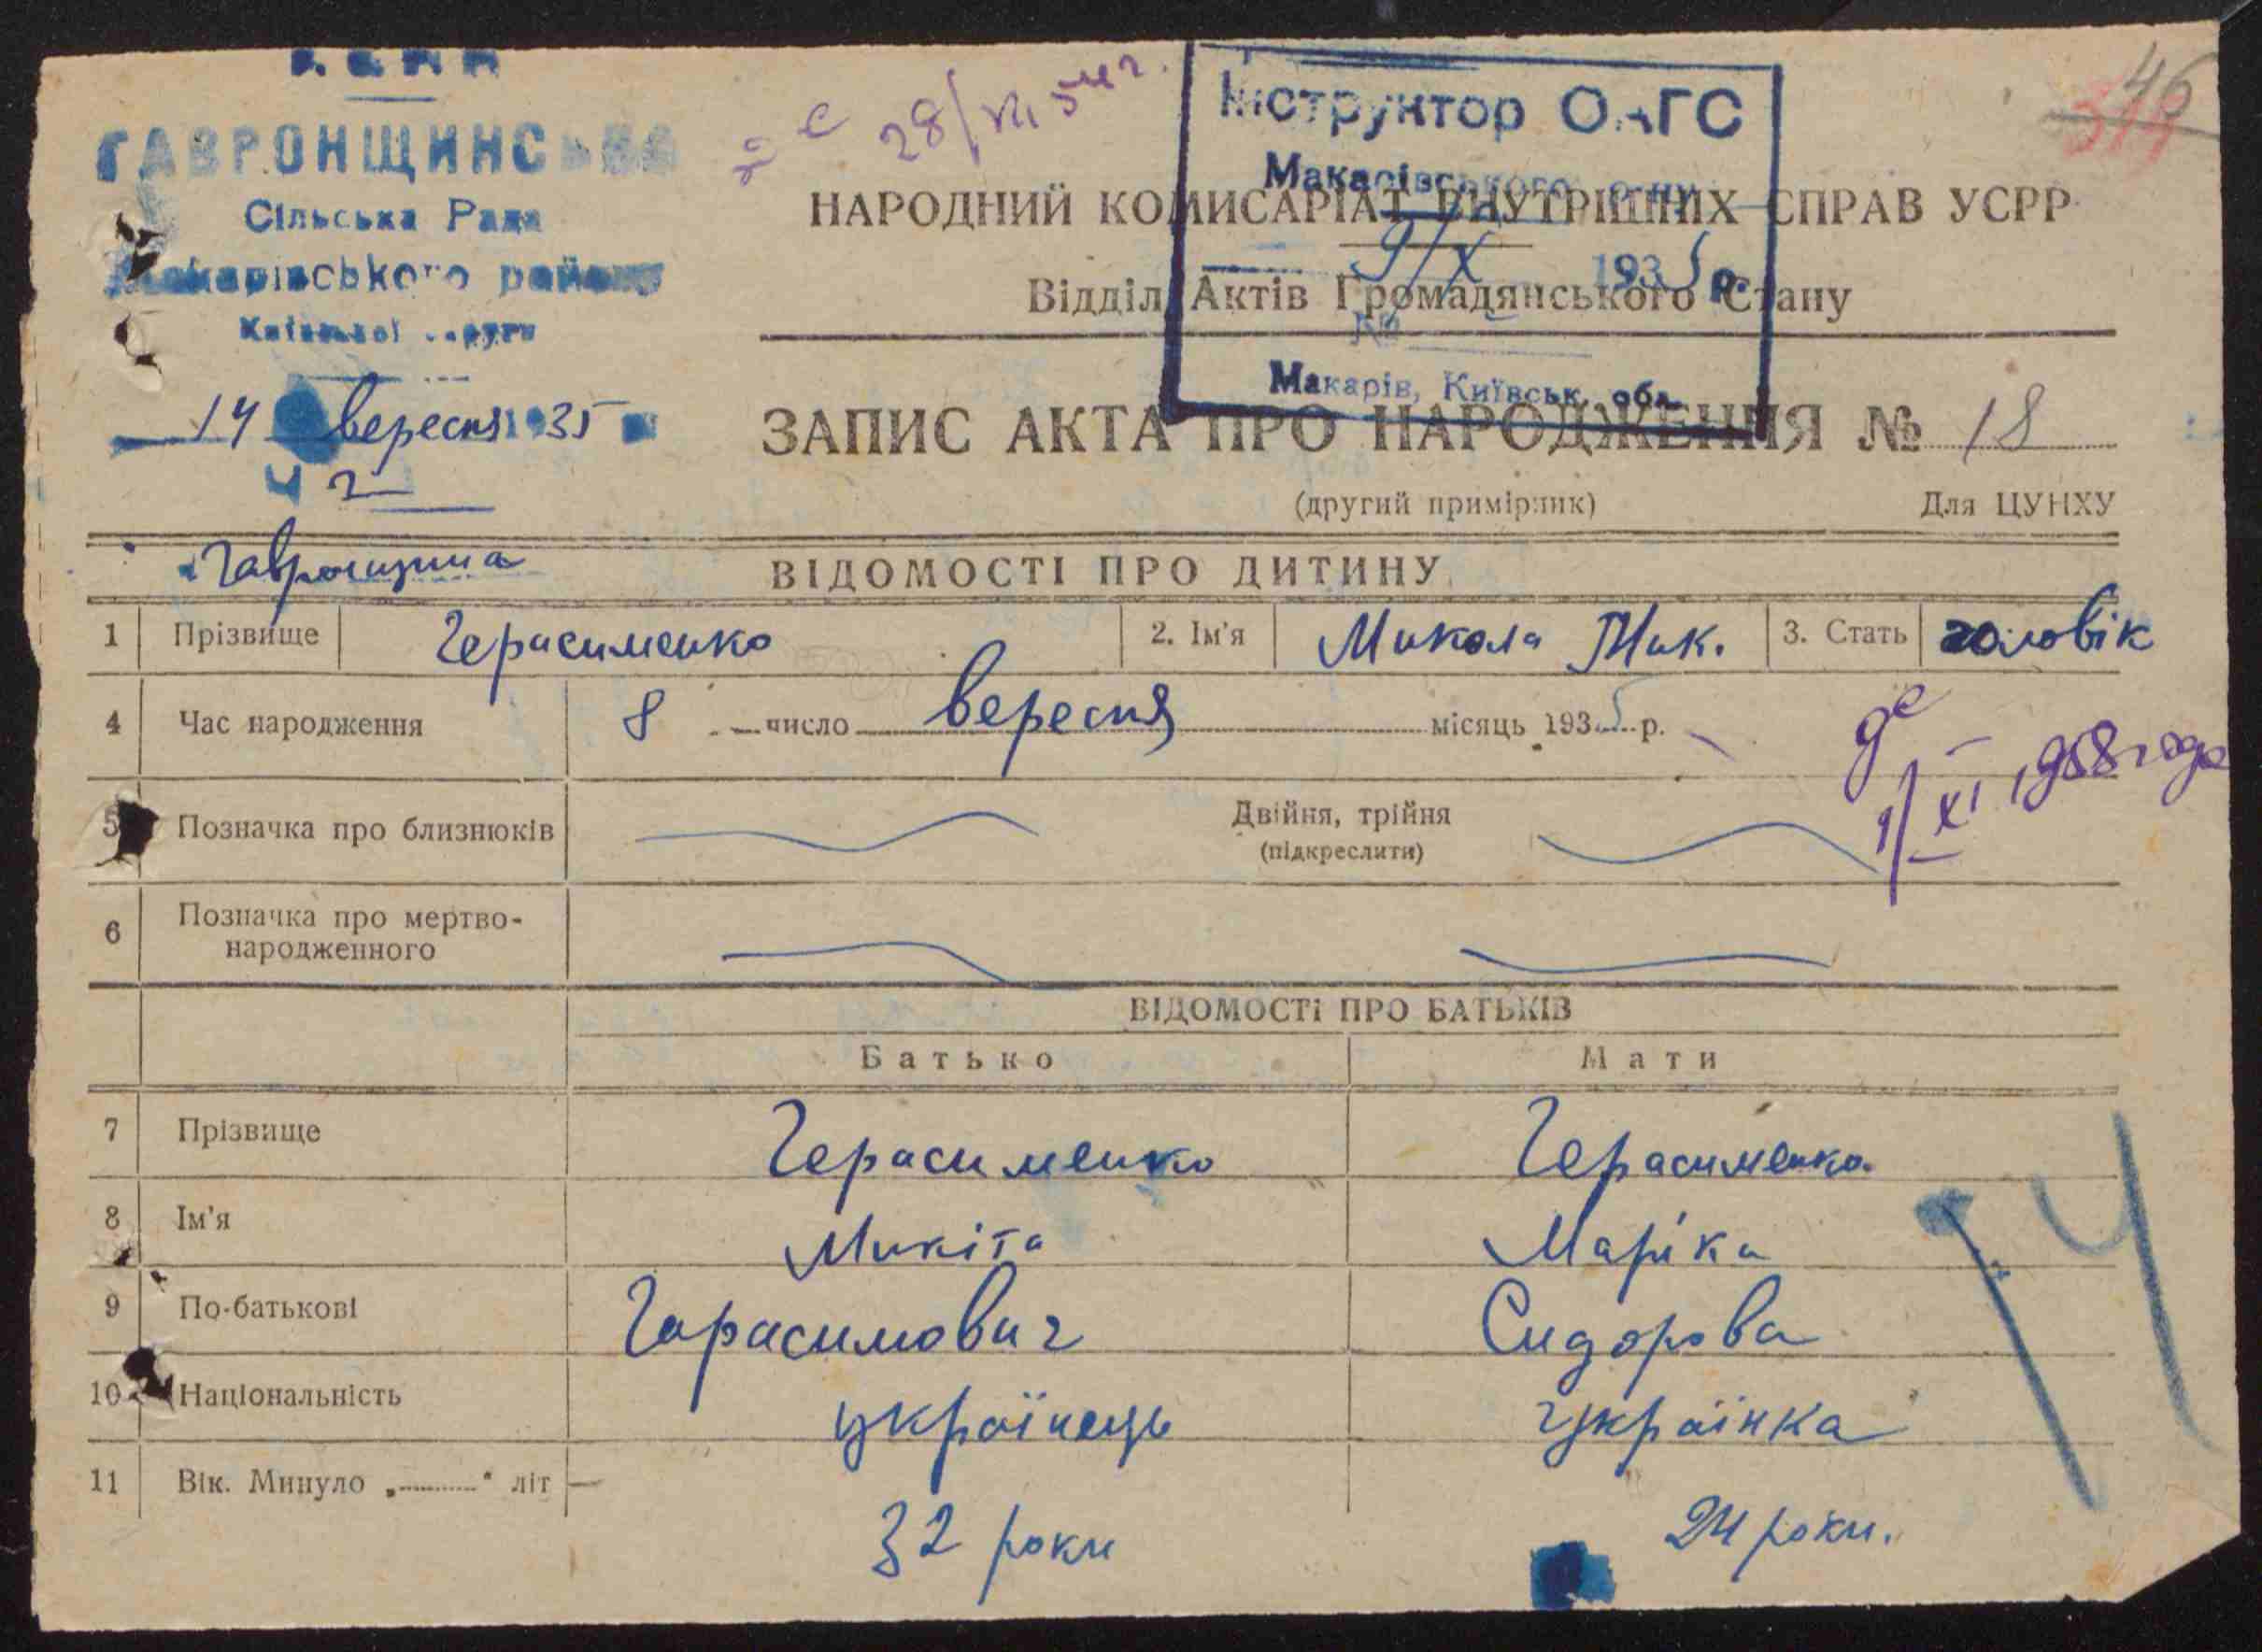 ГАВРОНЩИНСЬКА
Сільська Рада
Макарівського району
Київської округи
14 вересня 1935
Ч 2
28/VII 54 г.
Інструктор ОАГС
Макарівського р-ну
9/X 1935 р.
№
Макарів, Київськ. обл.
46
НАРОДНИЙ КОМИСАРІАТ ВНУТРІШНІХ СПРАВ УСРР
Відділ Актів Громадянського Стану
ЗАПИС АКТА ПРО НАРОДЖЕННЯ № 18
(другий примірник) Для ЦУНХУ
Гавронщина
ВІДОМОСТІ ПРО ДИТИНУ
1 Прізвище Герасименко 2. Ім'я Микола Мик. 3. Стать чоловік
4 Час народження 8 число вересня місяць 1935 р.
9/XI 1958 года
5 Позначка про близнюків Двійня, трійня
(підкреслити)
6 Позначка про мертво-
народженного
ВІДОМОСТІ ПРО БАТЬКІВ
Батько Мати
7 Прізвище Герасименко Герасименко
8 Ім'я Микіта Маріка
9 По-батькові Гарасимович Сидорова
10 Національність українець українка
11 Вік. Минуло „..........“ літ 32 роки 24 роки.
4